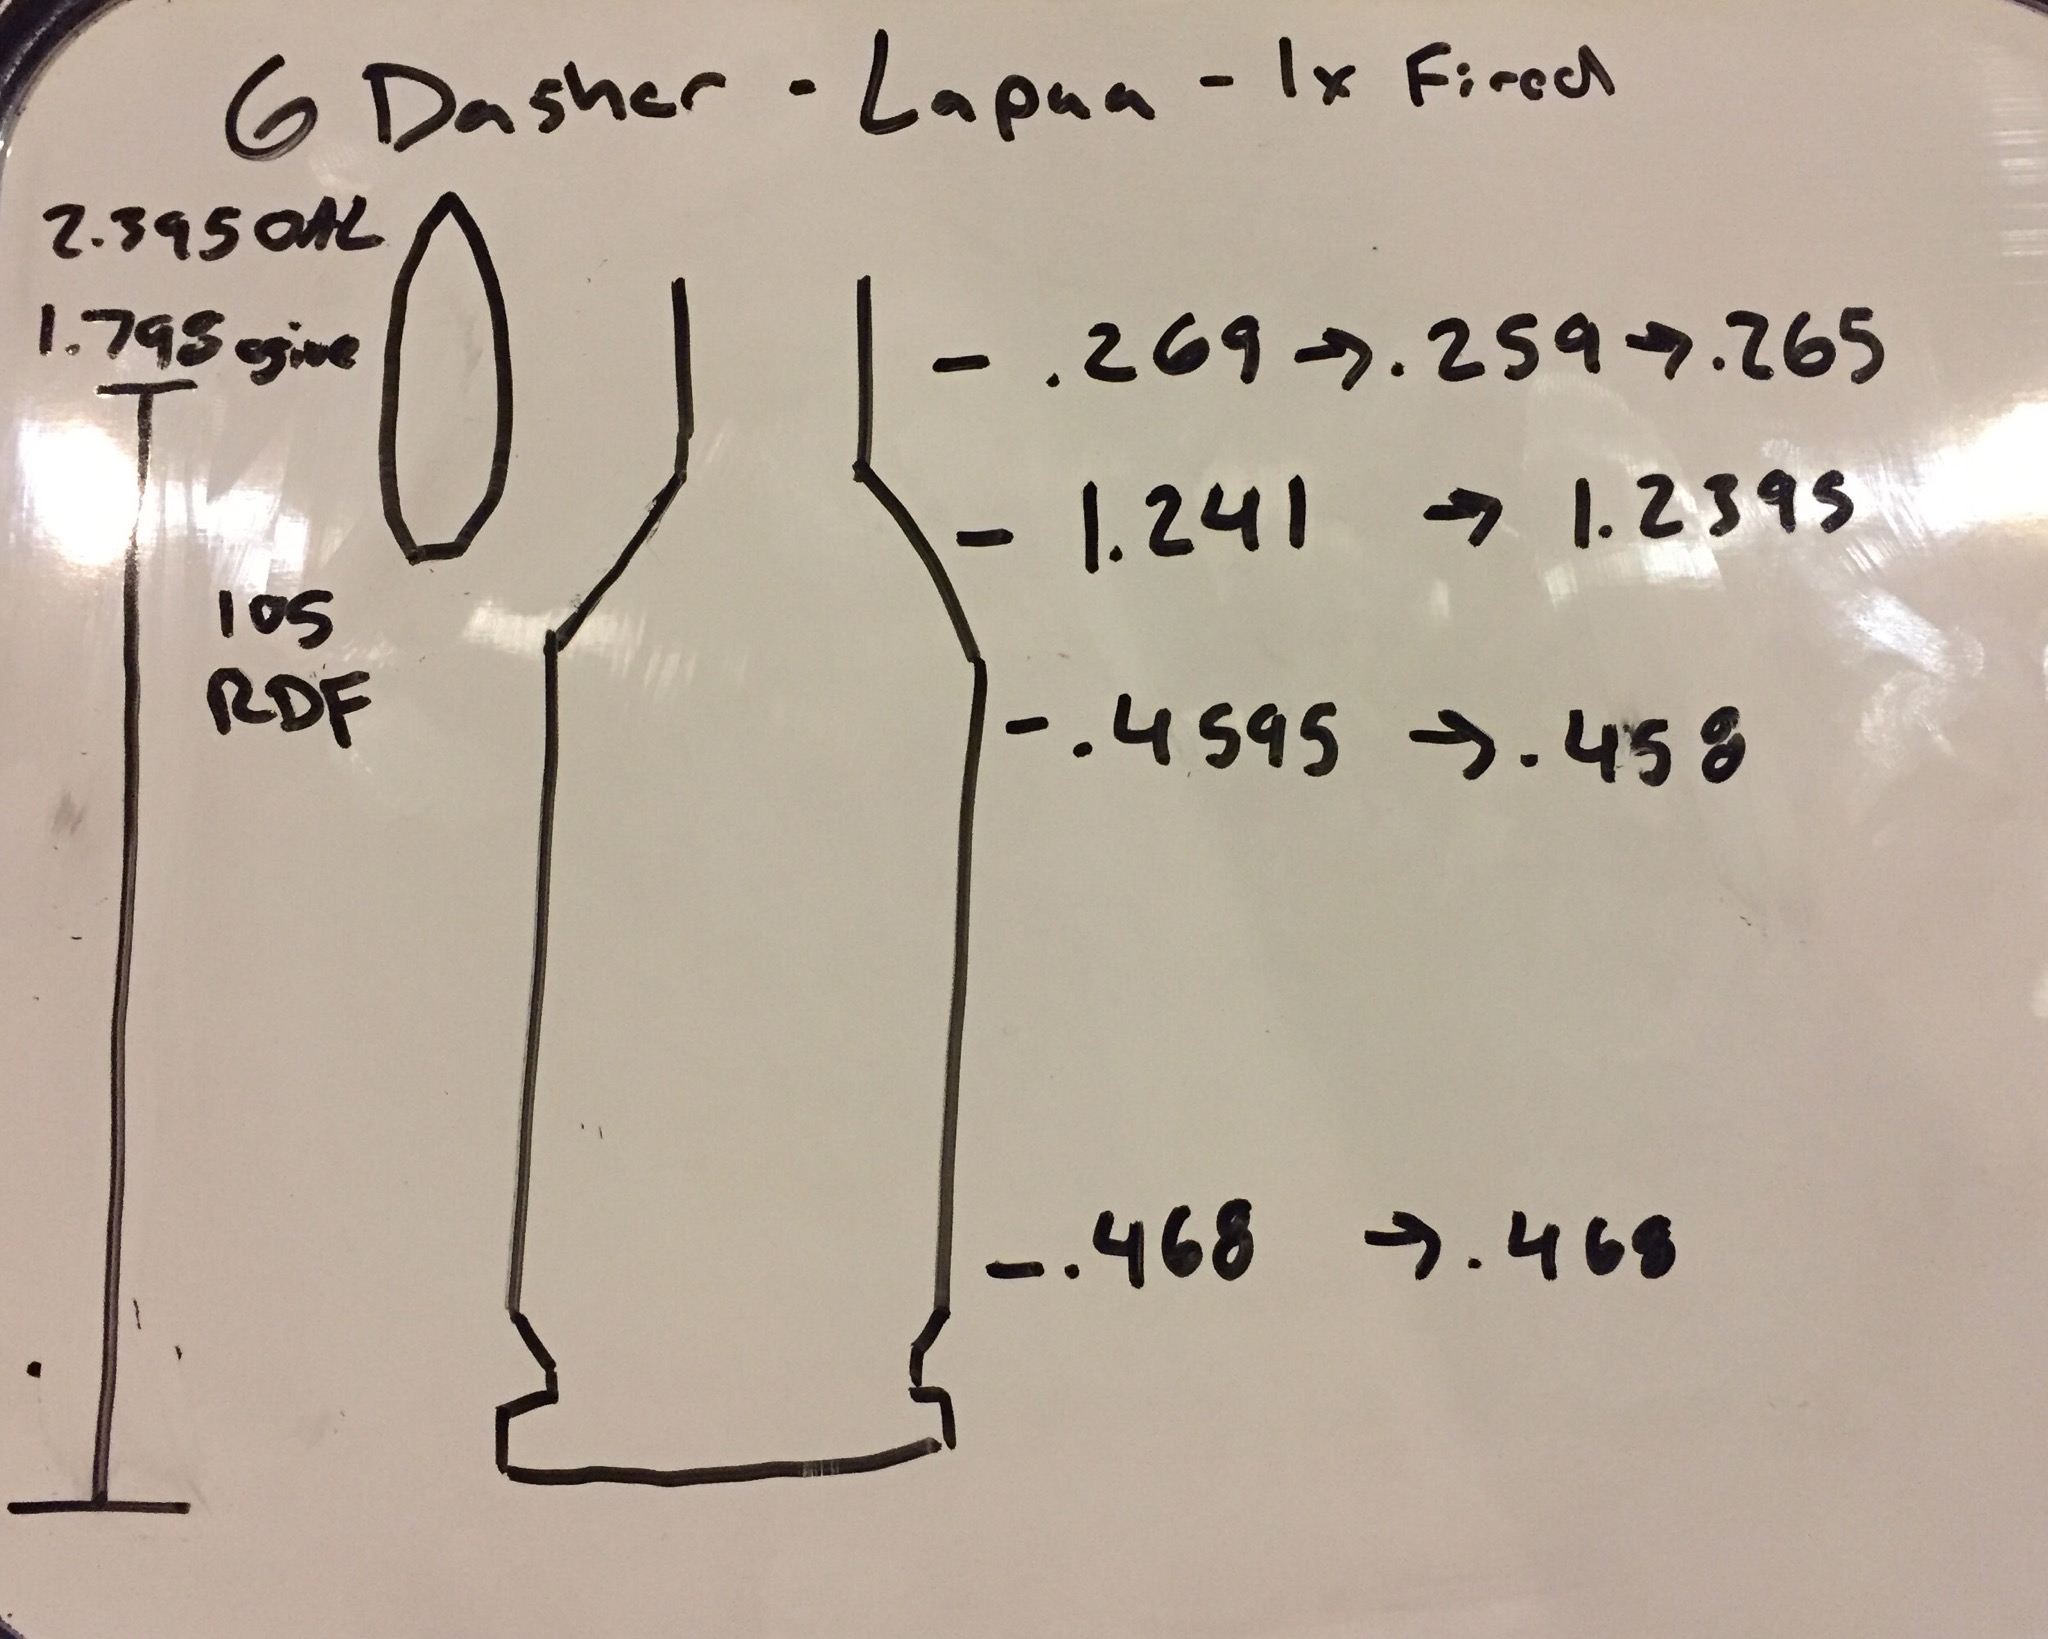 6 Dasher - Lapua - 1x Fired
2.395 OAL
1.798 ogive
105
RDF
- .269 → .259 → .265
- 1.241 → 1.2395
- .4595 → .458
- .468 → .468